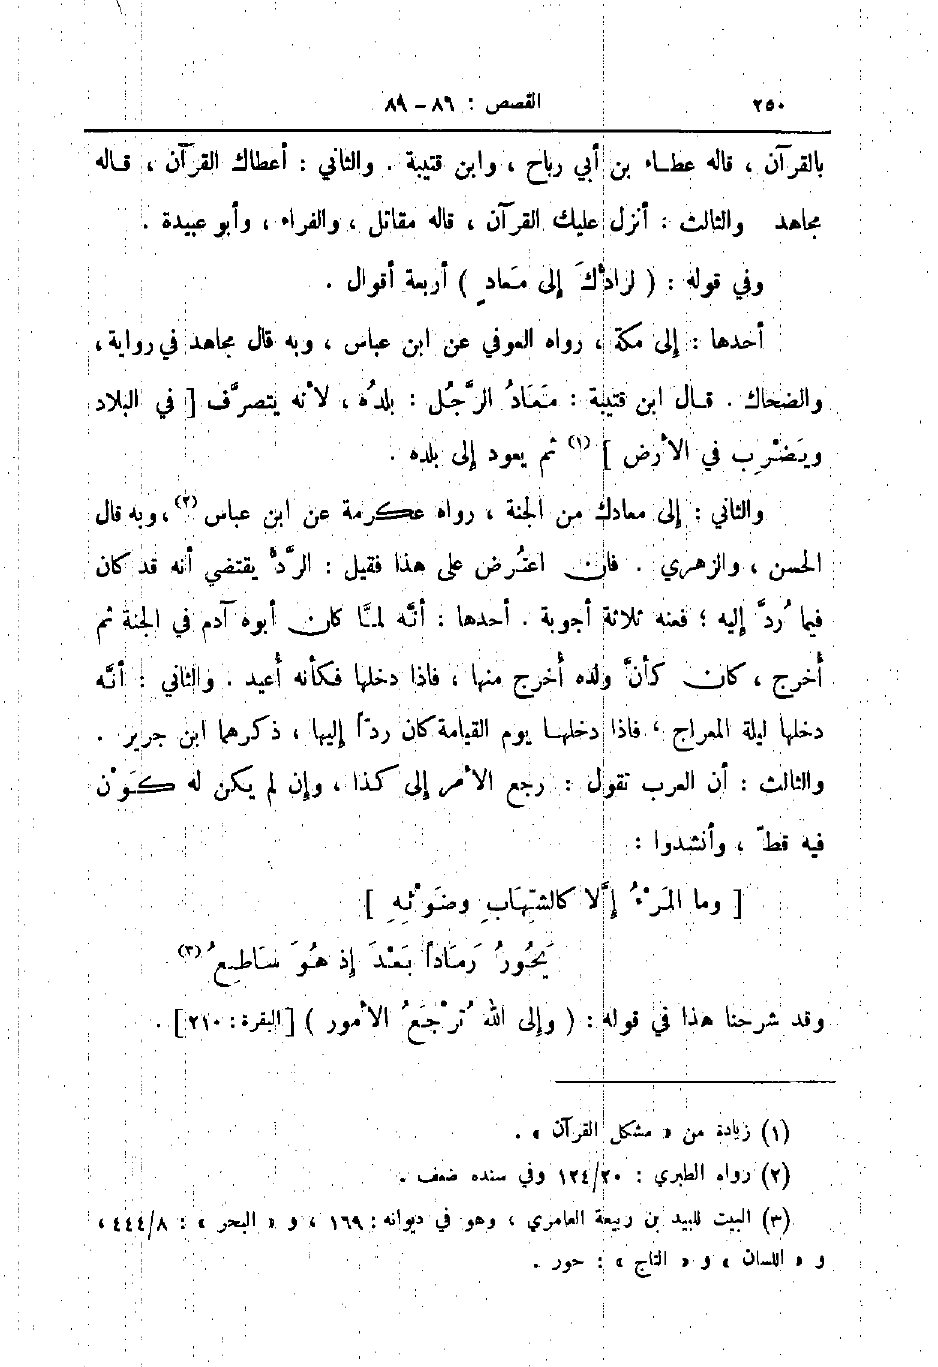 ٢٥٠ القصص : ٨٦ – ٨٩
بالقرآن ، قاله عطـاء بن أبي رباح ، وابن قتيبة . والثاني : أعطاك القرآن ، قـاله
مجاهد والثالث : أنزل عليك القرآن ، قاله مقاتل ، والفراء ، وأبو عبيدة .
وفي قوله : ( لرادُّكَ إلى مَعادٍ ) أربعة أقوال .
أحدها : إلى مكة ، رواه العوفي عن ابن عباس ، وبه قال مجاهد في رواية ،
والضحاك . قـال ابن قتيبة : مَعَادُ الرَّجُل : بلدُه ، لأنه يتصرَّف [ في البلاد
ويَضْرِب في الأرض ] (١) ثم يعود إلى بلده .
والثاني : إلى معادك من الجنة ، رواه عكرمة عن ابن عباس (٢) ، وبه قال
الحسن ، والزهري . فان اعتُرض على هذا فقيل : الرَّدُّ يقتضي أنه قد كان
فيما رُدَّ إليه ؛ فعنه ثلاثة أجوبة . أحدها : أنَّه لمـَّا كان أبوه آدم في الجنة ثم
أُخرج ، كان كأنَّ ولده أُخرج منها ، فاذا دخلها فكأنه أُعيد . والثاني : أنَّه
دخلها ليلة المعراج ، فاذا دخلهـا يوم القيامة كان ردّاً إليها ، ذكرهما ابن جرير .
والثالث : أن العرب تقول : رجع الأمر إلى كذا ، وإن لم يكن له كَوْن
فيه قطّ ، وأنشدوا :
[ وما المَرْءُ إلَّا كالشِّهَابِ وضَوْئهِ ]
يَحُورُ رَمَاداً بَعْدَ إذ هُوَ سَاطِعُ (٣)
وقد شرحنا هذا في قوله : ( وإلى الله تُرْجَعُ الأمور ) [ البقرة : ٢١٠ ] .
(١) زيادة من « مشكل القرآن » .
(٢) رواه الطبري : ١٢٤/٢٠ وفي سنده ضعف .
(٣) البيت للبيد بن ربيعة العامري ، وهو في ديوانه : ١٦٩ ، و « البحر » : ٤٤٤/٨ ،
و « اللسان » و « التاج » : حور .